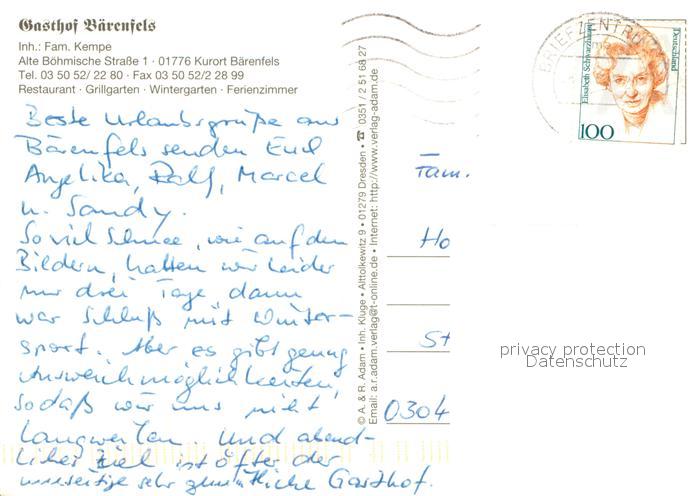 Gasthof Bärenfels
Inh.: Fam. Kempe
Alte Böhmische Straße 1 · 01776 Kurort Bärenfels
Tel. 03 50 52/ 22 80 · Fax 03 50 52/2 28 99
Restaurant · Grillgarten · Wintergarten · Ferienzimmer
Beste Urlaubsgrüße aus
Bärenfels senden Euch
Angelika, Ralf, Marcel
u. Sandy.
Soviel Schnee, wie auf den
Bildern, hatten wir leider
nur drei Tage, dann
war Schluß mit Winter-
sport. Aber es gibt genug
Ausweichmöglichkeiten,
sodaß wir uns nicht
langweilen. Und abend-
liches Ziel ist öfter der
unseitige sehr gemütliche Gasthof.
© A. & R. Adam • Inh. Kluge • Alttolkewitz 9 • 01279 Dresden • ☎ 0351 / 2 51 68 27
Email: a.r.adam.verlag@t-online.de • Internet: http://www.verlag-adam.de
BRIEFZENTRU
Elisabeth Schwarzhaupt
Deutschland
100
Fam.
Ho
St
0304
privacy protection
Datenschutz